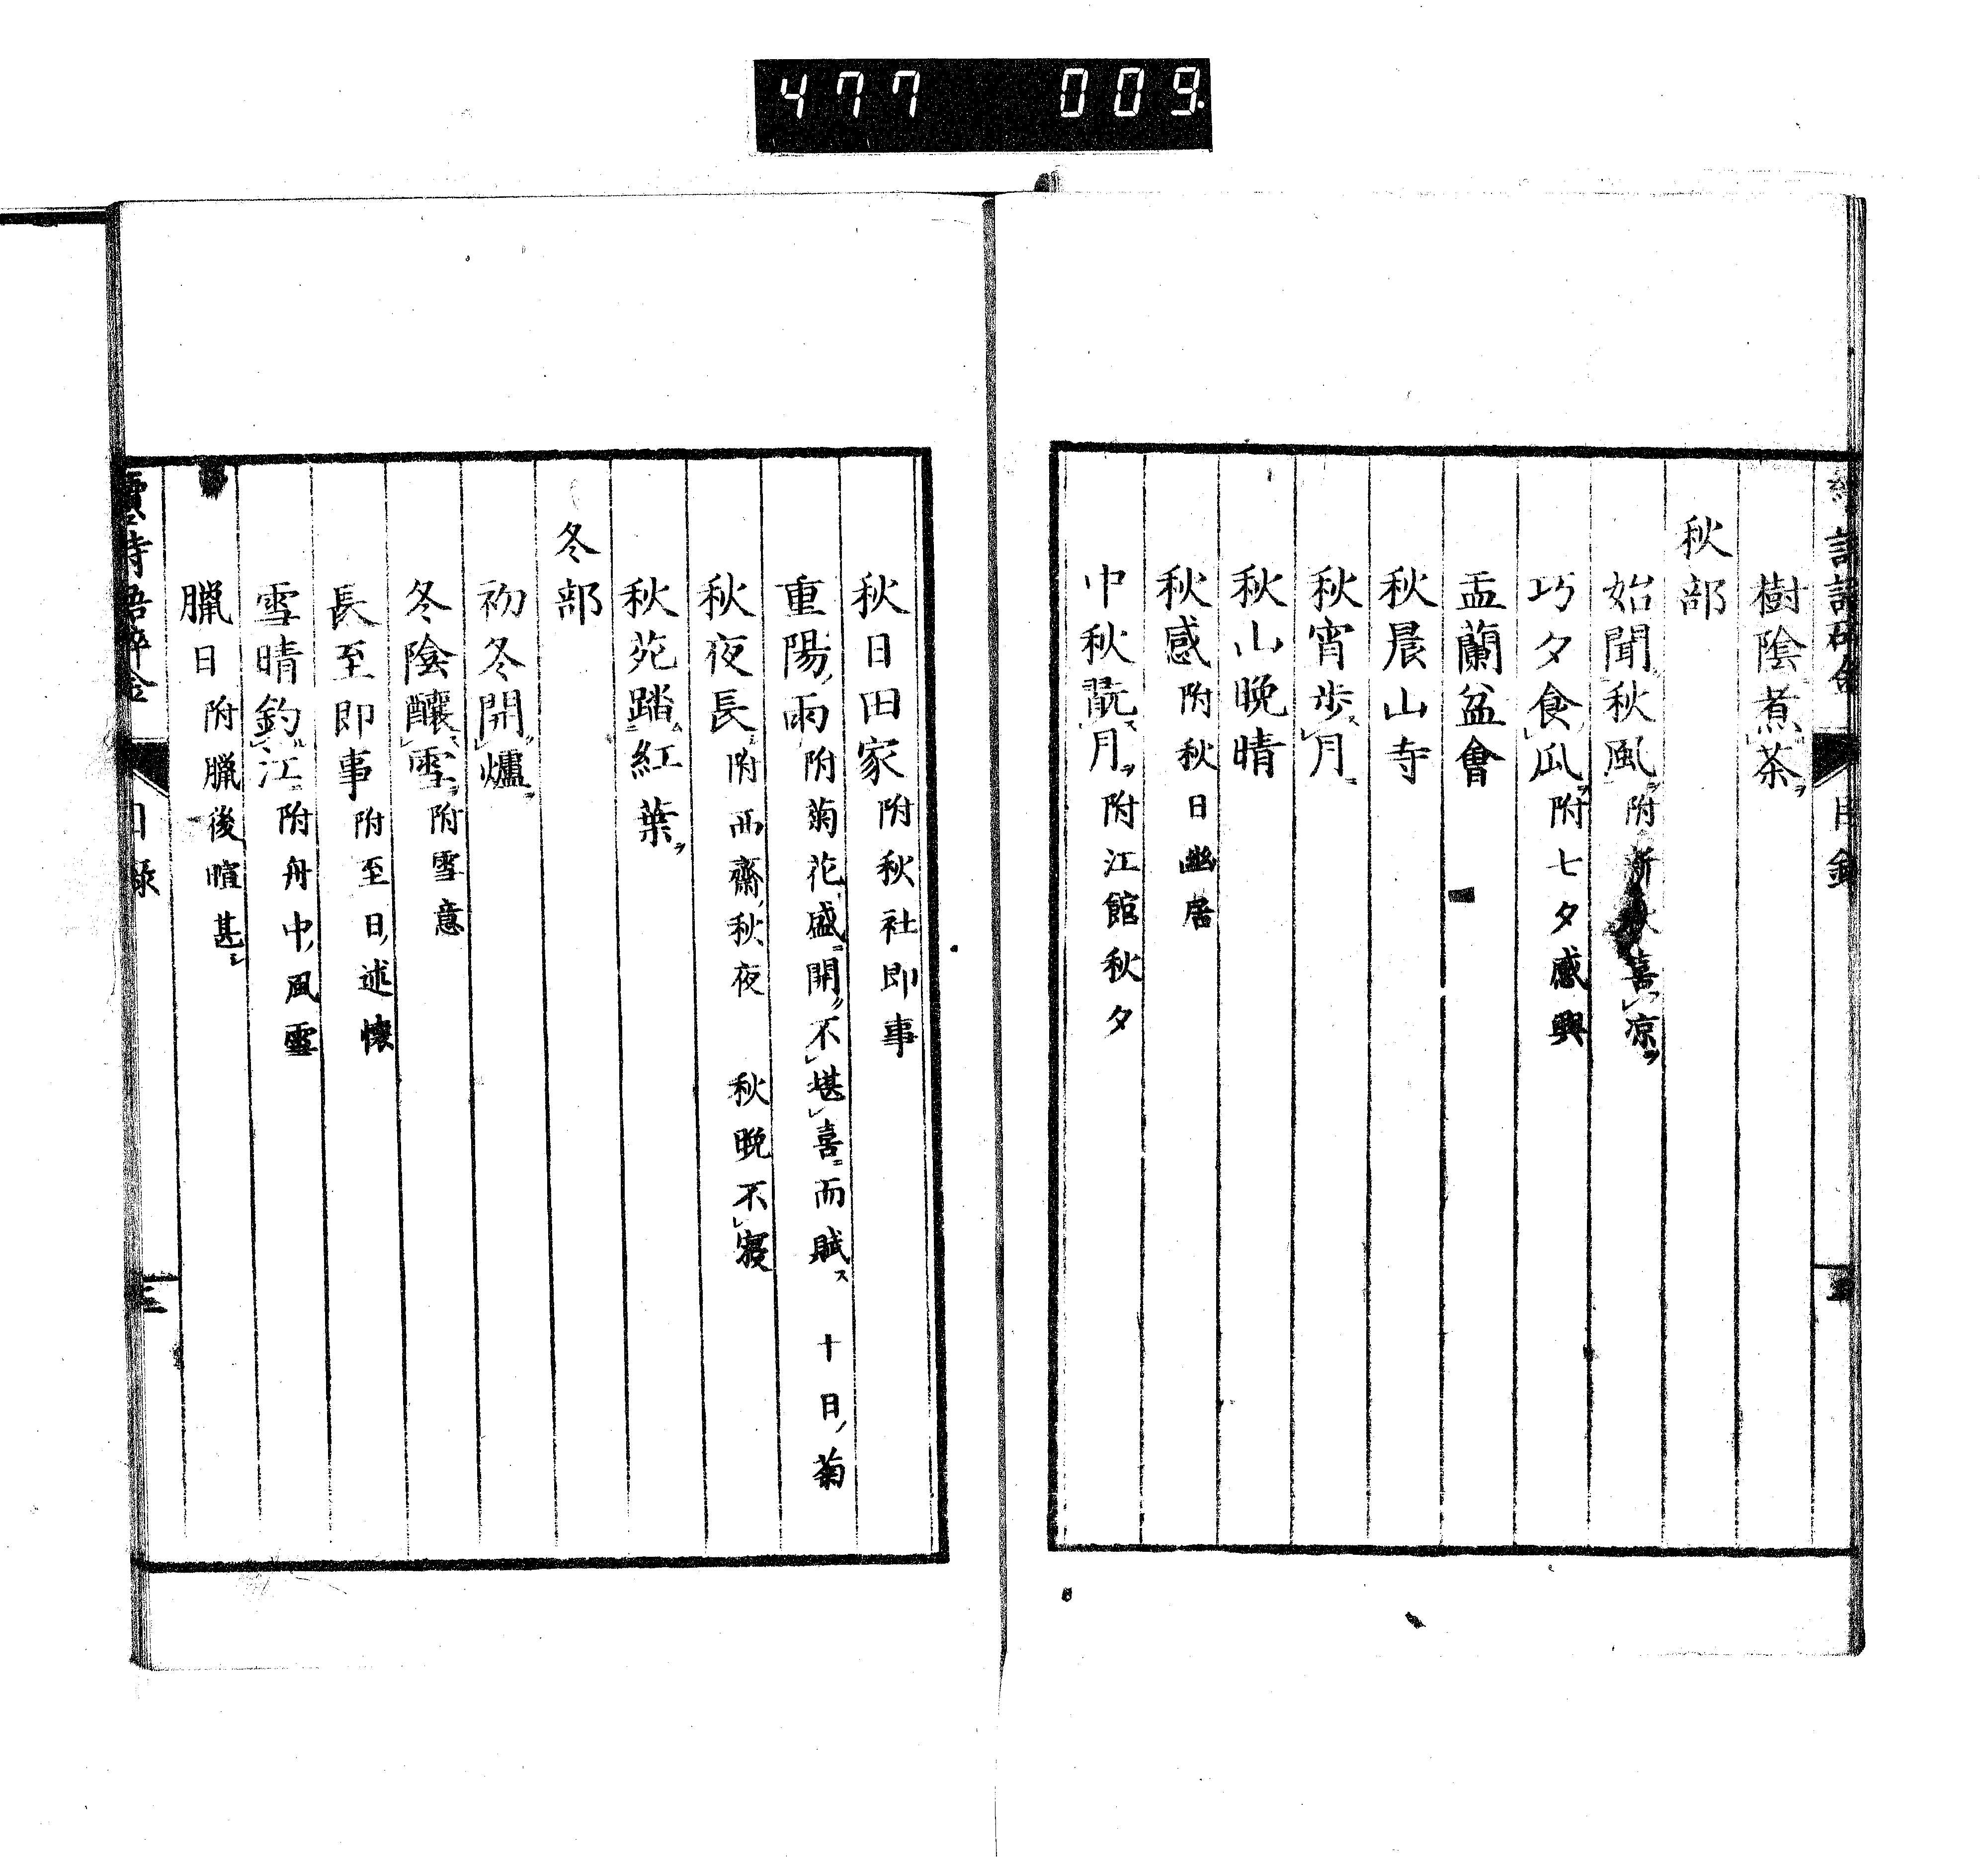 477 009
樹陰煮茶ヲ
秋部
始聞秋風ヲ附新秋喜凉ヲ
巧夕食瓜ヲ附七夕感興
盂蘭盆會
秋晨山寺
秋宵歩月ニ
秋山晩晴
秋感附秋日幽居
中秋翫月ヲ附江館秋夕
秋日田家附秋社即事
重陽ノ雨附菊花盛ニ開ク不堪喜ニ而賦ス 十日ノ菊
秋夜長附西齋ノ秋夜 秋晩不寝
秋苑踏紅葉ヲ
冬部
初冬開爐ヲ
冬陰釀雪ヲ附雪意
長至即事附至日ノ述懐
雪晴釣江ニ附舟中ノ風雪
臘日附臘後暄甚シ
目録
三